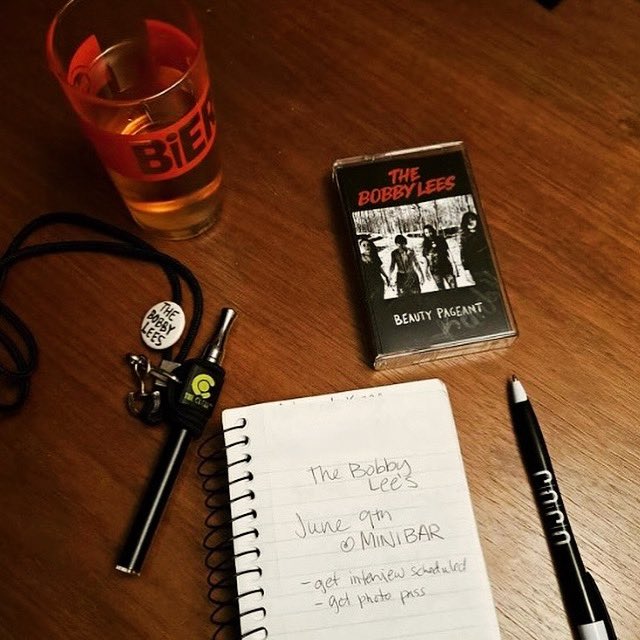 BIER
THE
BOBBY LEES
BEAUTY PAGEANT
THE
BOBBY
LEES
The Bobby
Lee's
June 9th
@ MINIBAR
- get interview scheduled
- get photo pass